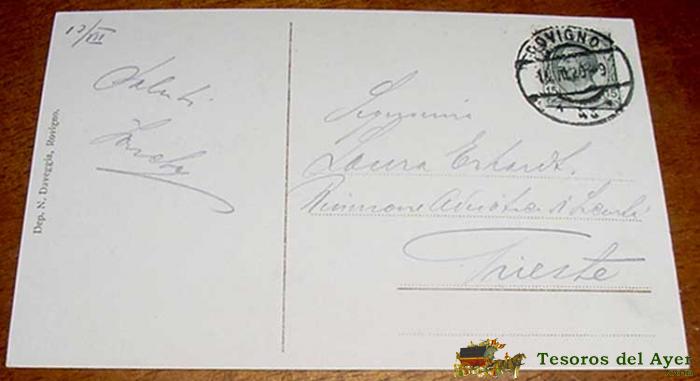 12/III
Saluti
Dep. N. Daveggia, Rovigno.
ROVIGNO
15
15
Signorina
Laura Erhardt.
Riunione Adriatica di Sicurtà
Trieste
Tesoros del Ayer
.com